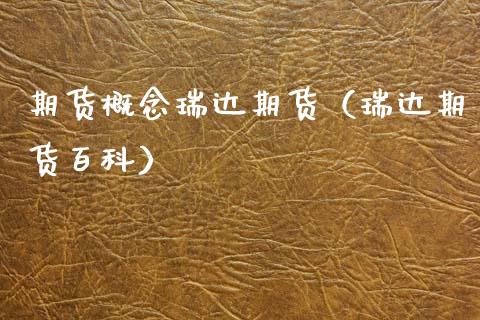 期货概念瑞达期货（瑞达期
货百科）